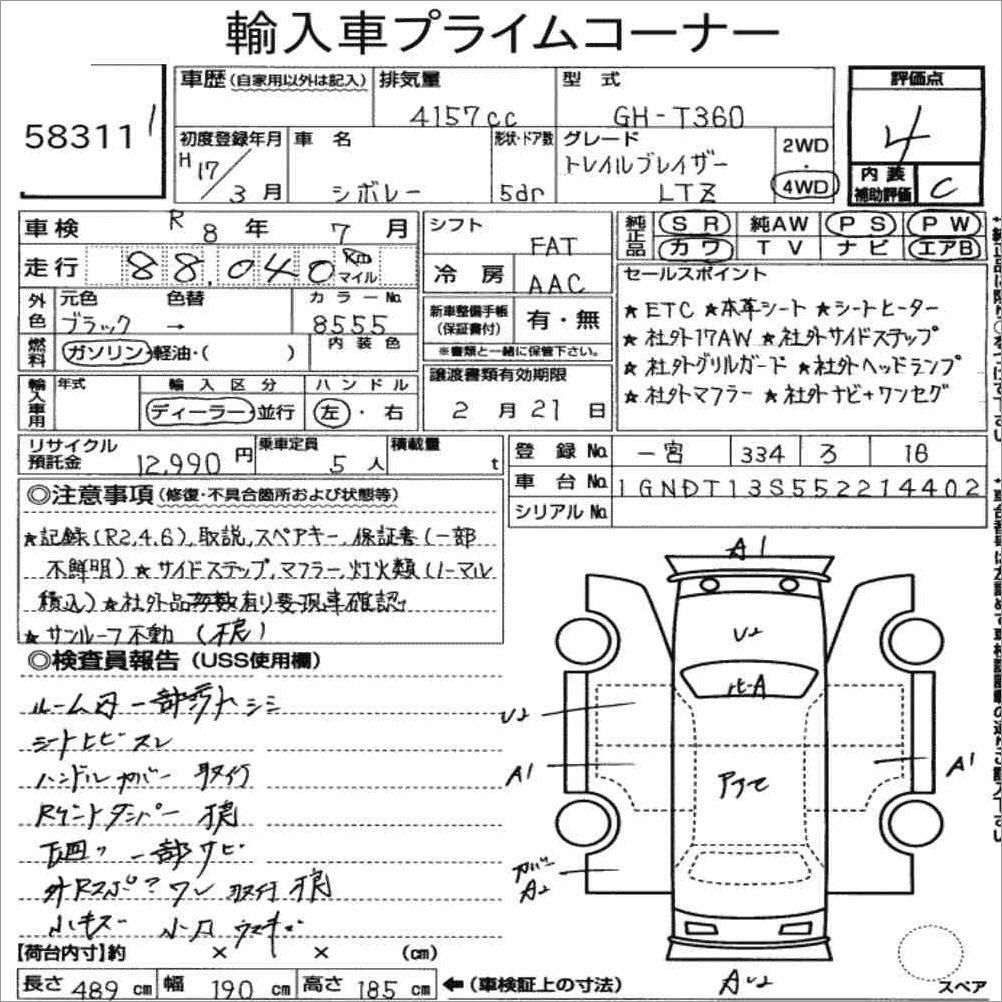 輸入車プライムコーナー
58311
車歴(自家用以外は記入)
排気量
4157cc
型式
GH-T360
評価点
4
初度登録年月
H17/3月
車名
シボレー
形状・ドア数
5dr
グレード
トレイルブレイザー
LTZ
2WD
・
4WD
内装
補助評価
C
車検 R8年7月
走行 88,040 Km
マイル
外色
元色 色替
ブラック →
カラーNo.
8555
燃料
ガソリン・軽油・( )
内装色
輸入車用
年式
輸入区分
ディーラー・並行
ハンドル
左・右
シフト
FAT
冷房
AAC
新車整備手帳
(保証書付)
有・無
※書類と一緒に保管下さい。
譲渡書類有効期限
2月21日
純正品
SR 純AW PS PW
カワ TV ナビ エアB
セールスポイント
★ETC ★本革シート ★シートヒーター
★社外17AW ★社外サイドステップ
★社外グリルガード ★社外ヘッドランプ
★社外マフラー ★社外ナビ+ワンセグ
リサイクル
預託金
12,990円
乗車定員
5人
積載量
t
登録No. 一宮 334 ろ 18
車台No. 1GNDT13S552214402
シリアルNo.
◎注意事項(修復・不具合箇所および状態等)
★記録(R2,4,6),取説,スペアキー,保証書(一部
不鮮明)★サイドステップ,マフラー,灯火類(ノーマル
積込)★社外品多数有り要現車確認
★サンルーフ不動
◎検査員報告(USS使用欄)
ルーム内 一部 シミ
シートヒビ スレ
ハンドルカバー 取付
下回り 一部サビ
小キズ
A1
U2
U2
A1
A1
カバー
A2
【荷台内寸】約 × × (cm)
長さ 489 cm 幅 190 cm 高さ 185 cm ←(車検証上の寸法)
スペア